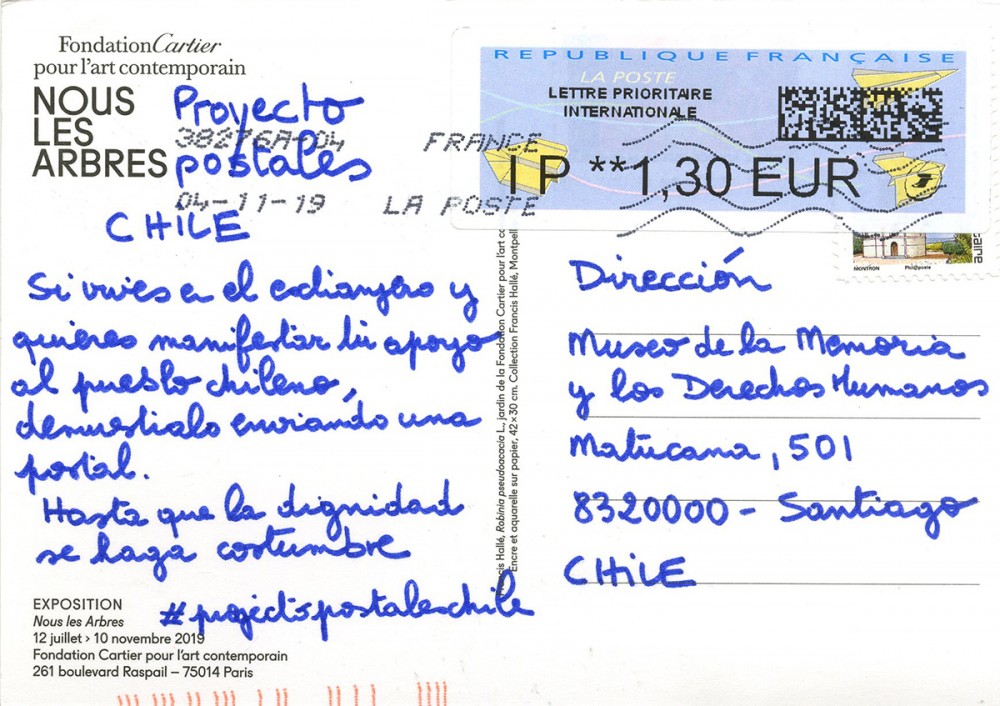 FondationCartier
pour l'art contemporain
NOUS
LES
ARBRES
Proyecto
postales
CHILE
38276A-04 FRANCE
04-11-19 LA POSTE
REPUBLIQUE FRANÇAISE
LA POSTE
LETTRE PRIORITAIRE
INTERNATIONALE
IP **1,30 EUR
MONTRON Phil@poste
Si vives en el extranjero y
quieres manifestar tu apoyo
al pueblo chileno,
demuestralo enviando una
postal.
Hasta que la dignidad
se haga costumbre
#projectopostaleschile
EXPOSITION
Nous les Arbres
12 juillet › 10 novembre 2019
Fondation Cartier pour l'art contemporain
261 boulevard Raspail – 75014 Paris
Francis Hallé, Robinia pseudoacacia L., jardin de la Fondation Cartier pour l'art
Encre et aquarelle sur papier, 42 × 30 cm. Collection Francis Hallé, Montpell
Dirección
Museo de la Memoria
y los Derechos Humanos
Matucana, 501
8320000 - Santiago
CHiLE